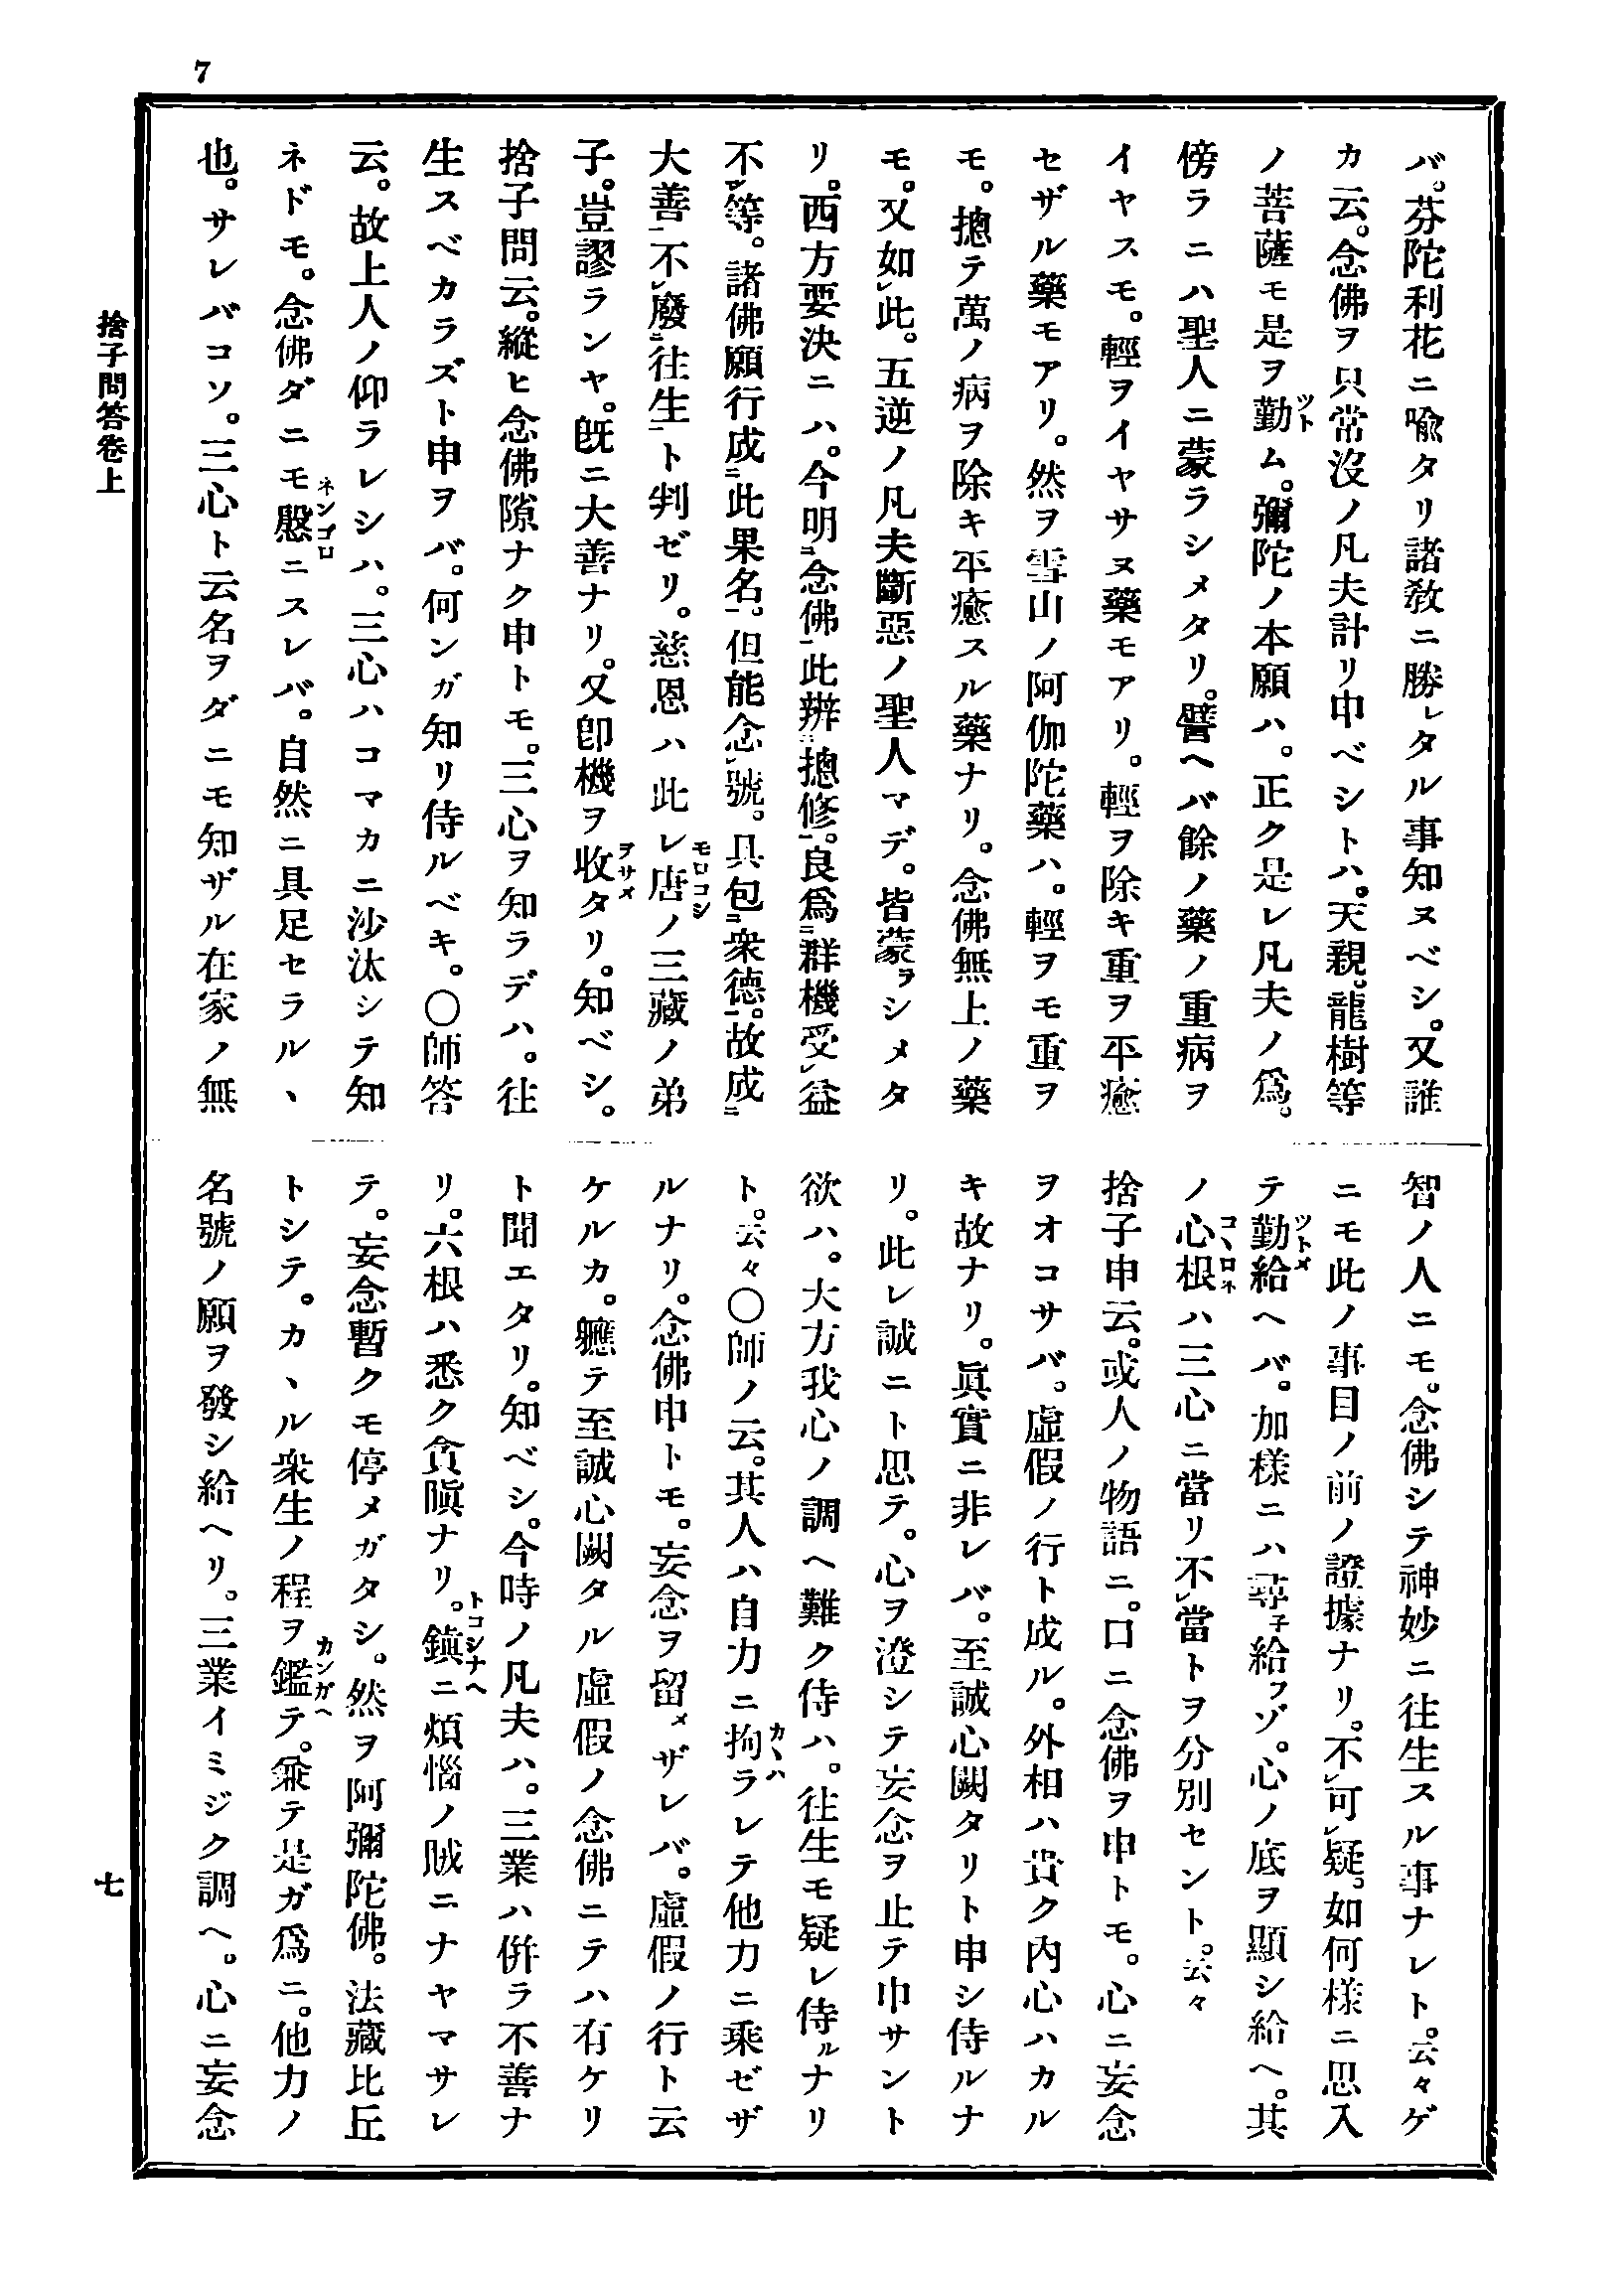 7
バ。芬陀利花ニ喩タリ諸敎ニ勝レタル事知ヌベシ。又誰
カ云。念佛ヲ只常沒ノ凡夫計リ申ベシトハ。天親。龍樹等
ノ菩薩モ是ヲ勤ム。彌陀ノ本願ハ。正ク是レ凡夫ノ爲。
傍ラニハ聖人ニ蒙ラシメタリ。譬ヘバ餘ノ藥ノ重病ヲ
イヤスモ。輕ヲイヤサヌ藥モアリ。輕ヲ除キ重ヲ平癒
セザル藥モアリ。然ヲ雪山ノ阿伽陀藥ハ。輕ヲモ重ヲ
モ。摠テ萬ノ病ヲ除キ平癒スル藥ナリ。念佛無上ノ藥
モ。又如レ此。五逆ノ凡夫斷惡ノ聖人マデ。皆蒙ヲシメタ
リ。西方要決ニハ。今明ニ念佛一此辨ニ摠修一。良爲ニ群機受レ益
不レ等。諸佛願行成ニ此果名一。但能念レ號。具包ニ衆德一。故成ニ
大善一不レ廢ニ往生一ト判ゼリ。慈恩ハ此レ唐ノ三藏ノ弟
子。豈謬ランヤ。旣ニ大善ナリ。又卽機ヲ收タリ。知ベシ。
捨子問云。縱ヒ念佛隙ナク申トモ。三心ヲ知ラデハ。往
生スベカラズト申ヲバ。何ンガ知リ侍ルベキ。〇師答
云。故上人ノ仰ラレシハ。三心ハコマカニ沙汰シテ知
ネドモ。念佛ダニモ慇ニスレバ。自然ニ具足セラルヽ
也。サレバコソ。三心ト云名ヲダニモ知ザル在家ノ無
智ノ人ニモ。念佛シテ神妙ニ往生スル事ナレト。云々ゲ
ニモ此ノ事目ノ前ノ證據ナリ。不レ可レ疑。如何樣ニ思入
テ勤給ヘバ。加樣ニハ尋子給フゾ。心ノ底ヲ顯シ給ヘ。其
ノ心根ハ三心ニ當リ不レ當トヲ分別セント。云々
捨子申云。或人ノ物語ニ。口ニ念佛ヲ申トモ。心ニ妄念
ヲオコサバ。虛假ノ行ト成ル。外相ハ貴ク內心ハカル
キ故ナリ。眞實ニ非レバ。至誠心闕タリト申シ侍ルナ
リ。此レ誠ニト思テ。心ヲ澄シテ妄念ヲ止テ申サント
欲ハ。大方我心ノ調ヘ難ク侍ハ。往生モ疑レ侍ルナリ
ト。云々〇師ノ云。其人ハ自力ニ拘ラレテ他力ニ乘ゼザ
ルナリ。念佛申トモ。妄念ヲ留メザレバ。虛假ノ行ト云
ケルカ。軈テ至誠心闕タル虛假ノ念佛ニテハ有ケリ
ト聞エタリ。知ベシ。今時ノ凡夫ハ。三業ハ倂ラ不善ナ
リ。六根ハ悉ク貪瞋ナリ。鎭ニ煩惱ノ賊ニナヤマサレ
テ。妄念暫クモ停メガタシ。然ヲ阿彌陀佛。法藏比丘
トシテ。カヽル衆生ノ程ヲ鑑テ。兼テ是ガ爲ニ。他力ノ
名號ノ願ヲ發シ給ヘリ。三業イミジク調ヘ。心ニ妄念
捨子問答卷上
七